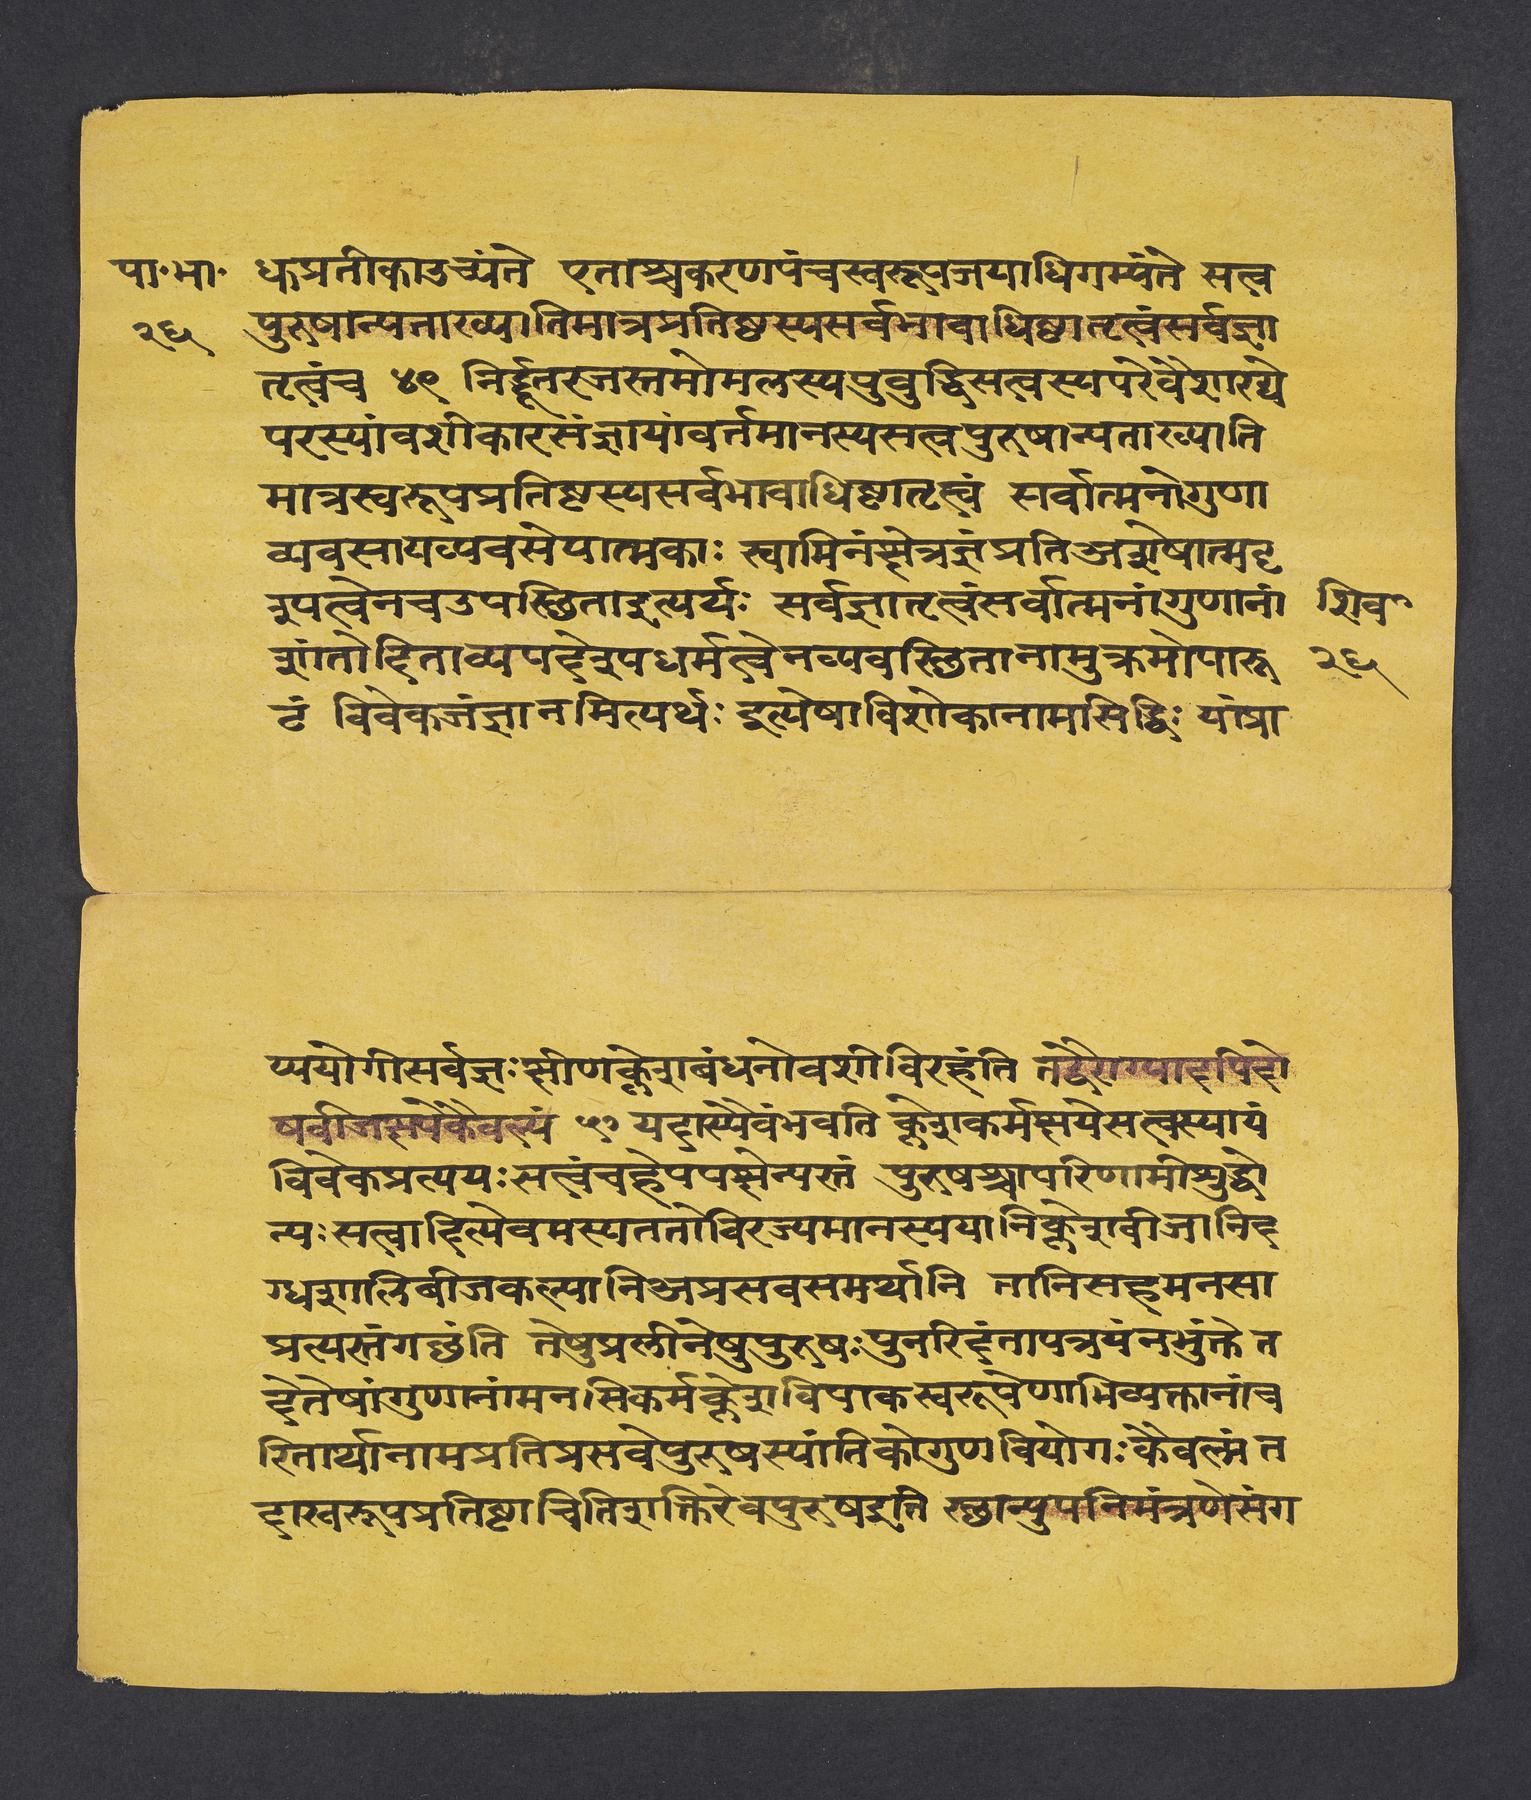 पा॰भा॰ धुप्रतीकाउच्यंते एताश्चकरणपंचस्वरूपजयाधिगम्यंते सत्व
२६ पुरुषान्यताख्यातिमात्रप्रतिष्ठस्यसर्वभावाधिष्ठातृत्वंसर्वज्ञा
तृत्वंच ४९ निर्द्धूतरजस्तमोमलस्यपुवुद्धिसत्वस्यपरेवैशारद्ये
परस्यांवशीकारसंज्ञायांवर्तमानस्यसत्वपुरुषान्यताख्याति
मात्रस्वरूपप्रतिष्टस्यसर्वभावाधिष्टातृत्वं सर्वात्मनोगुणा
व्यवसायव्यवसेयात्मकाः स्वामिनंक्षेत्रज्ञंप्रतिअशेषात्मदृ
रूपत्वेनचउपस्छिताइत्यर्थः सर्वज्ञातृत्वंसर्वात्मनांगुणानां शिव॰
शांतोदिताव्यपदेरूपधर्मत्वेनव्यवस्छितानामुक्रमोपारू २६
ढं विवेकजंज्ञानमित्यर्थः इत्येषाविशोकानामसिद्धिः यांप्रा
प्ययोगीसर्वज्ञःक्षीणक्लेशबंधनोवशीविरहंति तद्वैराग्यादपिदो
षवीजक्षयेकैवल्यं ५० यदास्यैवंभवति क्लेशकर्मक्षयेसत्वस्यायं
विवेकप्रत्ययःसत्वंचहेयपक्षेन्यस्तं पुरुषश्चापरिणामीशुद्धो
न्यःसत्वादित्येवमस्यततोविरज्यमानस्ययानिक्लेशवीजानिद
ग्धशालिबीजकल्पानिअप्रसवसमर्थानि तानिसहमनसा
प्रत्यस्तंगछंति तेषुप्रलीनेषुपुरुषःपुनरिदंतापत्रयंनभुंक्ते त
देतेषांगुणानांमनसिकर्मक्लेशविपाकस्वरूपेणाभिव्यक्तानांच
रितार्थानामप्रतिप्रसवेपुरुषस्यांतिकोगुणवियोगःकैवल्यं त
दास्वरूपप्रतिष्टाचितिशक्तिरेवपुरुषइति स्छान्युपनिमंत्रणेसंग